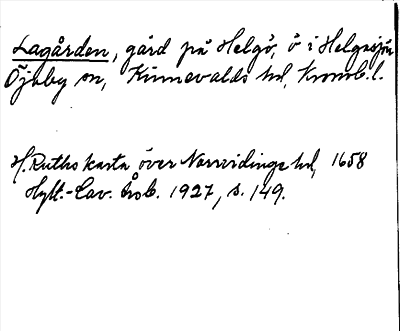 Lagården, gård på Helgö, ö i Helgasjön
Öjaby sn, Kinnevalds hd, Kronob. l.
H. Ruths karta över Norrvidinge hd, 1658
Hylt.-Cav. årsb. 1927, s. 149.